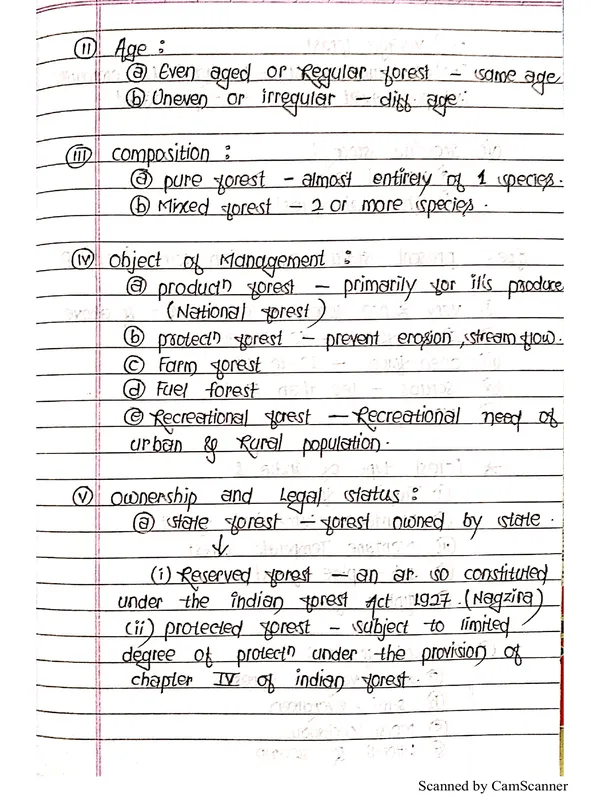 (ii) Age :
(a) Even aged or Regular forest – same age
(b) Uneven or irregular – diff age.
(iii) composition :
(a) pure forest – almost entirely of 1 species.
(b) Mixed forest – 2 or more species.
(iv) object of Management :
(a) productⁿ forest – primarily for it's produce
(National forest)
(b) protectⁿ forest – prevent erosion, stream flow.
(c) Farm forest
(d) Fuel forest
(e) Recreational forest – Recreational need of
urban & Rural population.
(v) ownership and Legal status :
(a) state forest – forest owned by state.
↓
(i) Reserved forest – an ar. so constituted
under the indian forest Act 1927. (Nagzira)
(ii) protected forest – subject to limited
degree of protectⁿ under the provision of
chapter IV of indian forest.
Scanned by CamScanner